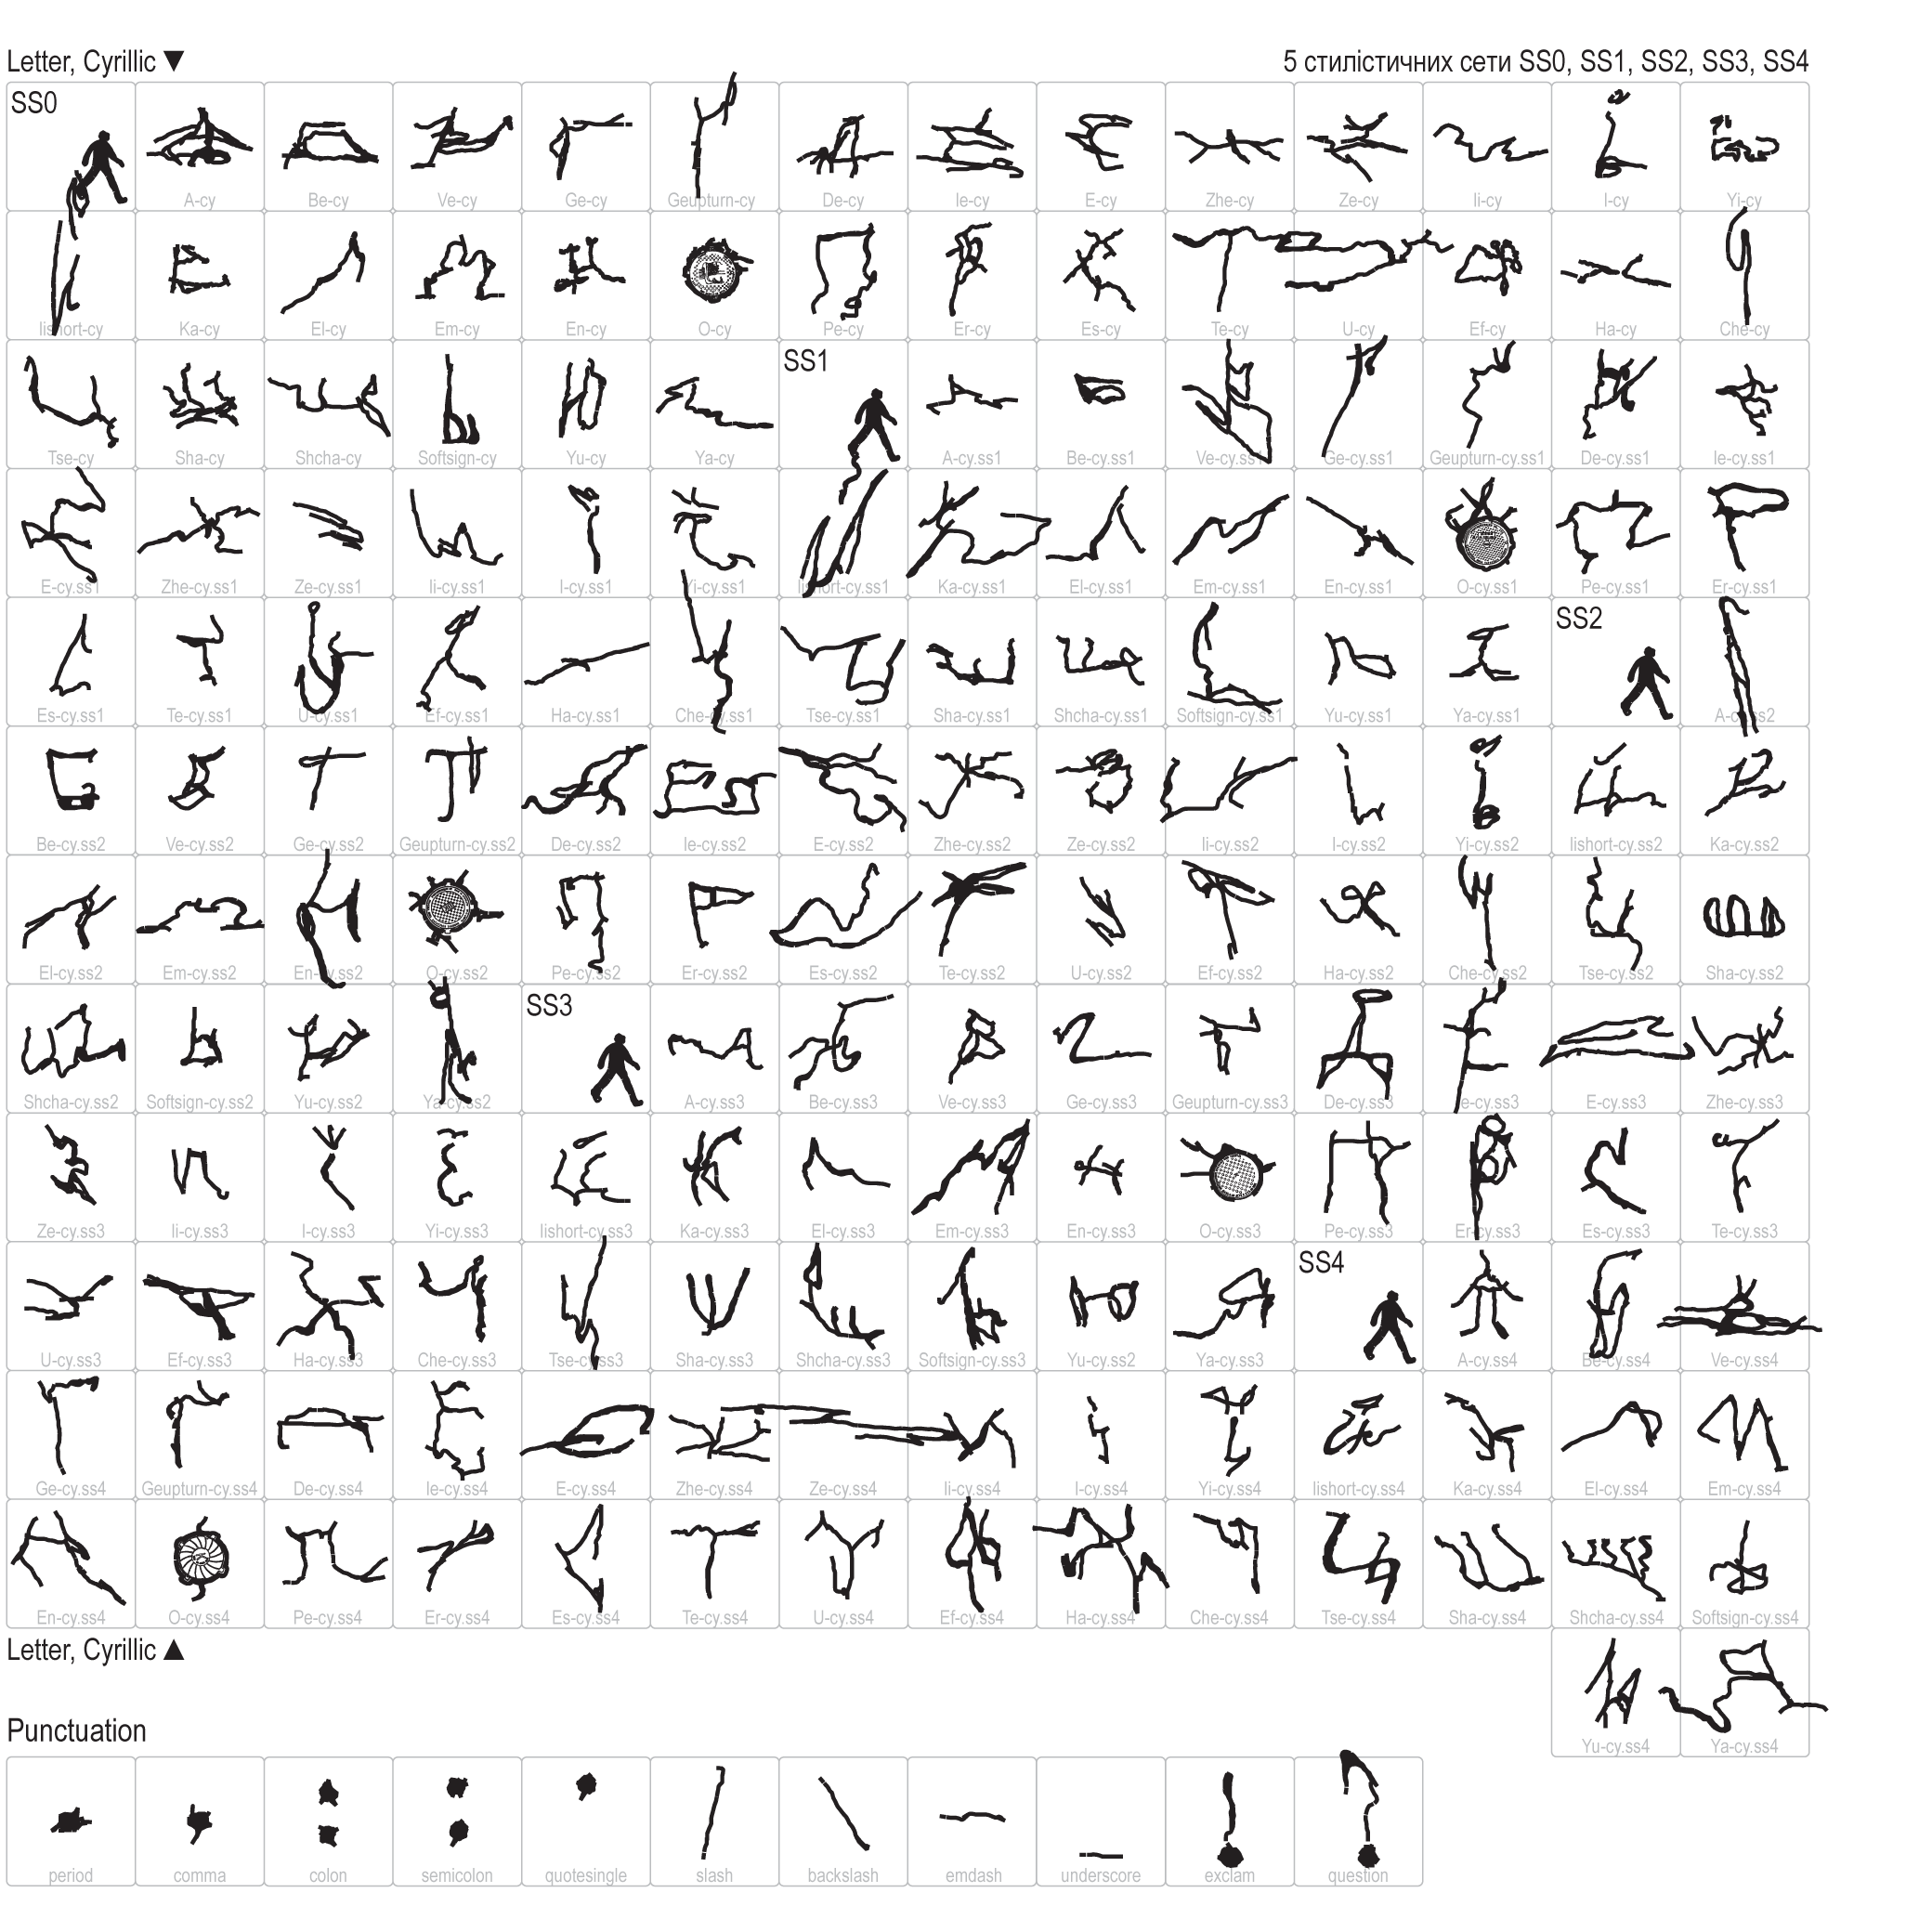 Letter, Cyrillic ▼
5 стилістичних сети SS0, SS1, SS2, SS3, SS4
SS0
A-cy Be-cy Ve-cy Ge-cy Geupturn-cy De-cy Ie-cy E-cy Zhe-cy Ze-cy Ii-cy I-cy Yi-cy
Iishort-cy Ka-cy El-cy Em-cy En-cy O-cy Pe-cy Er-cy Es-cy Te-cy U-cy Ef-cy Ha-cy Che-cy
SS1
Tse-cy Sha-cy Shcha-cy Softsign-cy Yu-cy Ya-cy A-cy.ss1 Be-cy.ss1 Ve-cy.ss1 Ge-cy.ss1 Geupturn-cy.ss1 De-cy.ss1 Ie-cy.ss1
E-cy.ss1 Zhe-cy.ss1 Ze-cy.ss1 Ii-cy.ss1 I-cy.ss1 Yi-cy.ss1 Iishort-cy.ss1 Ka-cy.ss1 El-cy.ss1 Em-cy.ss1 En-cy.ss1 O-cy.ss1 Pe-cy.ss1 Er-cy.ss1
SS2
Es-cy.ss1 Te-cy.ss1 U-cy.ss1 Ef-cy.ss1 Ha-cy.ss1 Che-cy.ss1 Tse-cy.ss1 Sha-cy.ss1 Shcha-cy.ss1 Softsign-cy.ss1 Yu-cy.ss1 Ya-cy.ss1 A-cy.ss2
Be-cy.ss2 Ve-cy.ss2 Ge-cy.ss2 Geupturn-cy.ss2 De-cy.ss2 Ie-cy.ss2 E-cy.ss2 Zhe-cy.ss2 Ze-cy.ss2 Ii-cy.ss2 I-cy.ss2 Yi-cy.ss2 Iishort-cy.ss2 Ka-cy.ss2
El-cy.ss2 Em-cy.ss2 En-cy.ss2 O-cy.ss2 Pe-cy.ss2 Er-cy.ss2 Es-cy.ss2 Te-cy.ss2 U-cy.ss2 Ef-cy.ss2 Ha-cy.ss2 Che-cy.ss2 Tse-cy.ss2 Sha-cy.ss2
SS3
Shcha-cy.ss2 Softsign-cy.ss2 Yu-cy.ss2 Ya-cy.ss2 A-cy.ss3 Be-cy.ss3 Ve-cy.ss3 Ge-cy.ss3 Geupturn-cy.ss3 De-cy.ss3 Ie-cy.ss3 E-cy.ss3 Zhe-cy.ss3
Ze-cy.ss3 Ii-cy.ss3 I-cy.ss3 Yi-cy.ss3 Iishort-cy.ss3 Ka-cy.ss3 El-cy.ss3 Em-cy.ss3 En-cy.ss3 O-cy.ss3 Pe-cy.ss3 Er-cy.ss3 Es-cy.ss3 Te-cy.ss3
SS4
U-cy.ss3 Ef-cy.ss3 Ha-cy.ss3 Che-cy.ss3 Tse-cy.ss3 Sha-cy.ss3 Shcha-cy.ss3 Softsign-cy.ss3 Yu-cy.ss2 Ya-cy.ss3 A-cy.ss4 Be-cy.ss4 Ve-cy.ss4
Ge-cy.ss4 Geupturn-cy.ss4 De-cy.ss4 Ie-cy.ss4 E-cy.ss4 Zhe-cy.ss4 Ze-cy.ss4 Ii-cy.ss4 I-cy.ss4 Yi-cy.ss4 Iishort-cy.ss4 Ka-cy.ss4 El-cy.ss4 Em-cy.ss4
En-cy.ss4 O-cy.ss4 Pe-cy.ss4 Er-cy.ss4 Es-cy.ss4 Te-cy.ss4 U-cy.ss4 Ef-cy.ss4 Ha-cy.ss4 Che-cy.ss4 Tse-cy.ss4 Sha-cy.ss4 Shcha-cy.ss4 Softsign-cy.ss4
Letter, Cyrillic ▲
Yu-cy.ss4 Ya-cy.ss4
Punctuation
period comma colon semicolon quotesingle slash backslash emdash underscore exclam question